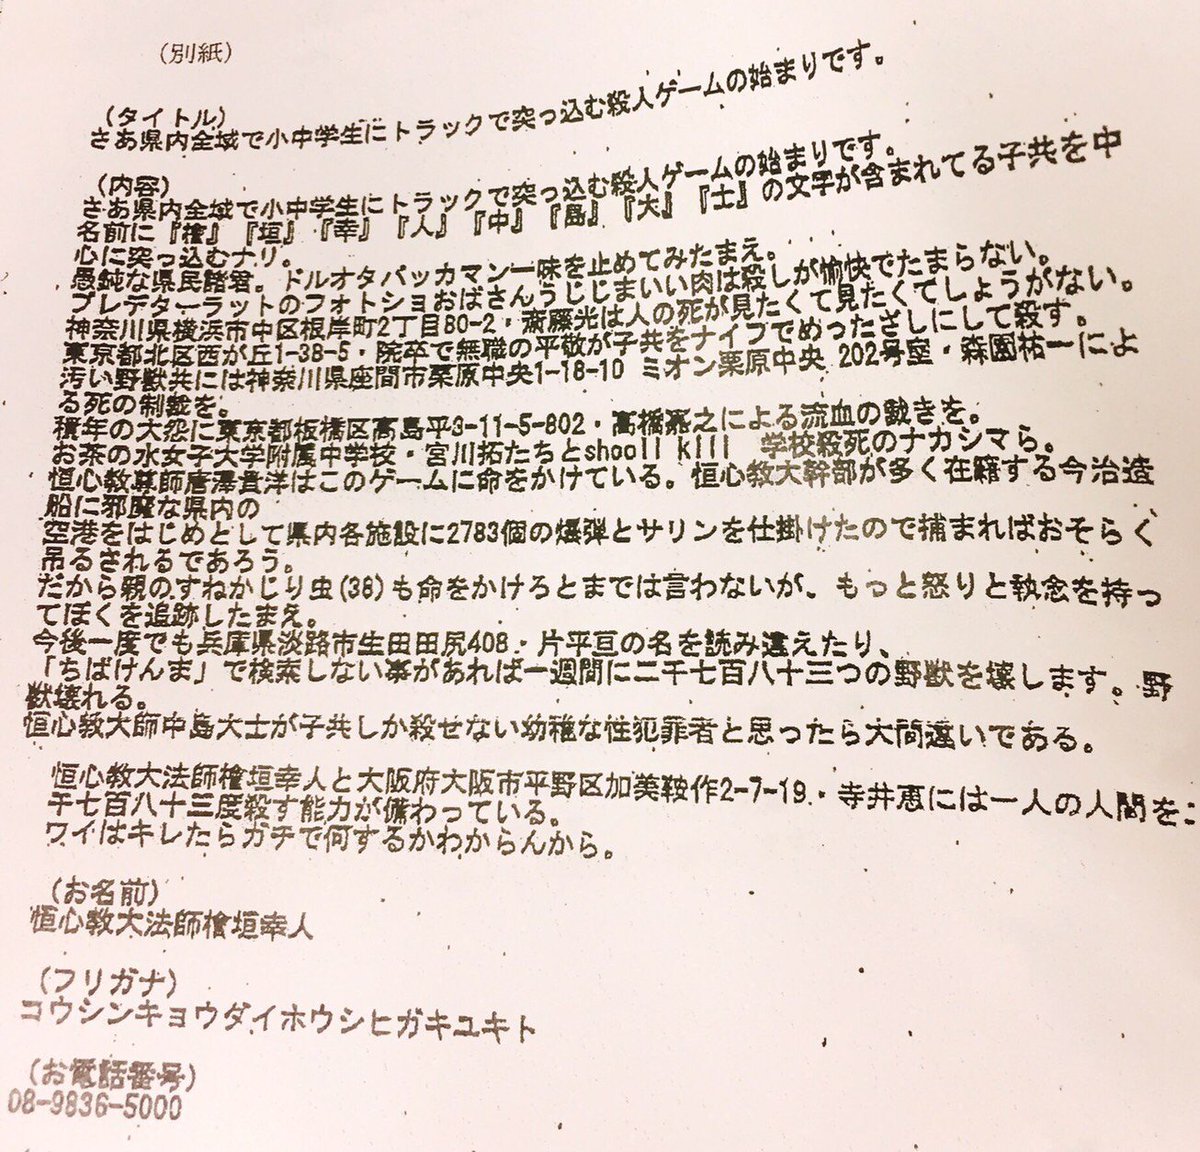 （別紙）
（タイトル）
さあ県内全域で小中学生にトラックで突っ込む殺人ゲームの始まりです。
（内容）
さあ県内全域で小中学生にトラックで突っ込む殺人ゲームの始まりです。
名前に『檜』『垣』『幸』『人』『中』『島』『大』『士』の文字が含まれてる子共を中
心に突っ込むナリ。
愚鈍な県民諸君。ドルオタパッカマン一味を止めてみたまえ。
プレデターラットのフォトショおばさんうじじまいい肉は殺しが愉快でたまらない。
神奈川県横浜市中区根岸町2丁目80-2・斎藤光は人の死が見たくて見たくてしょうがない。
東京都北区西が丘1-38-5・院卒で無職の平敬が子共をナイフでめったざしにして殺す。
汚い野獣共には神奈川県座間市栗原中央1-18-10 ミオン栗原中央 202号室・森園祐一によ
る死の制裁を。
積年の大怨に東京都板橋区高島平3-11-5-802・高橋亮之による流血の裁きを。
お茶の水女子大学附属中学校・宮川拓たちとshooll kill 学校殺死のナカシマら。
恒心教尊師唐澤貴洋はこのゲームに命をかけている。恒心教大幹部が多く在籍する今治造
船に邪魔な県内の
空港をはじめとして県内各施設に2783個の爆弾とサリンを仕掛けたので捕まればおそらく
吊るされるであろう。
だから親のすねかじり虫(38)も命をかけろとまでは言わないが、もっと怒りと執念を持っ
てぼくを追跡したまえ。
今後一度でも兵庫県淡路市生田田尻408・片平亘の名を読み違えたり、
「ちばけんま」で検索しない事があれば一週間に二千七百八十三つの野獣を壊します。野
獣壊れる。
恒心教大師中島大士が子共しか殺せない幼稚な性犯罪者と思ったら大間違いである。
恒心教大法師檜垣幸人と大阪府大阪市平野区加美鞍作2-7-19・寺井恵には一人の人間を二
千七百八十三度殺す能力が備わっている。
ワイはキレたらガチで何するかわからんから。
（お名前）
恒心教大法師檜垣幸人
（フリガナ）
コウシンキョウダイホウシヒガキユキト
（お電話番号）
08-9836-5000